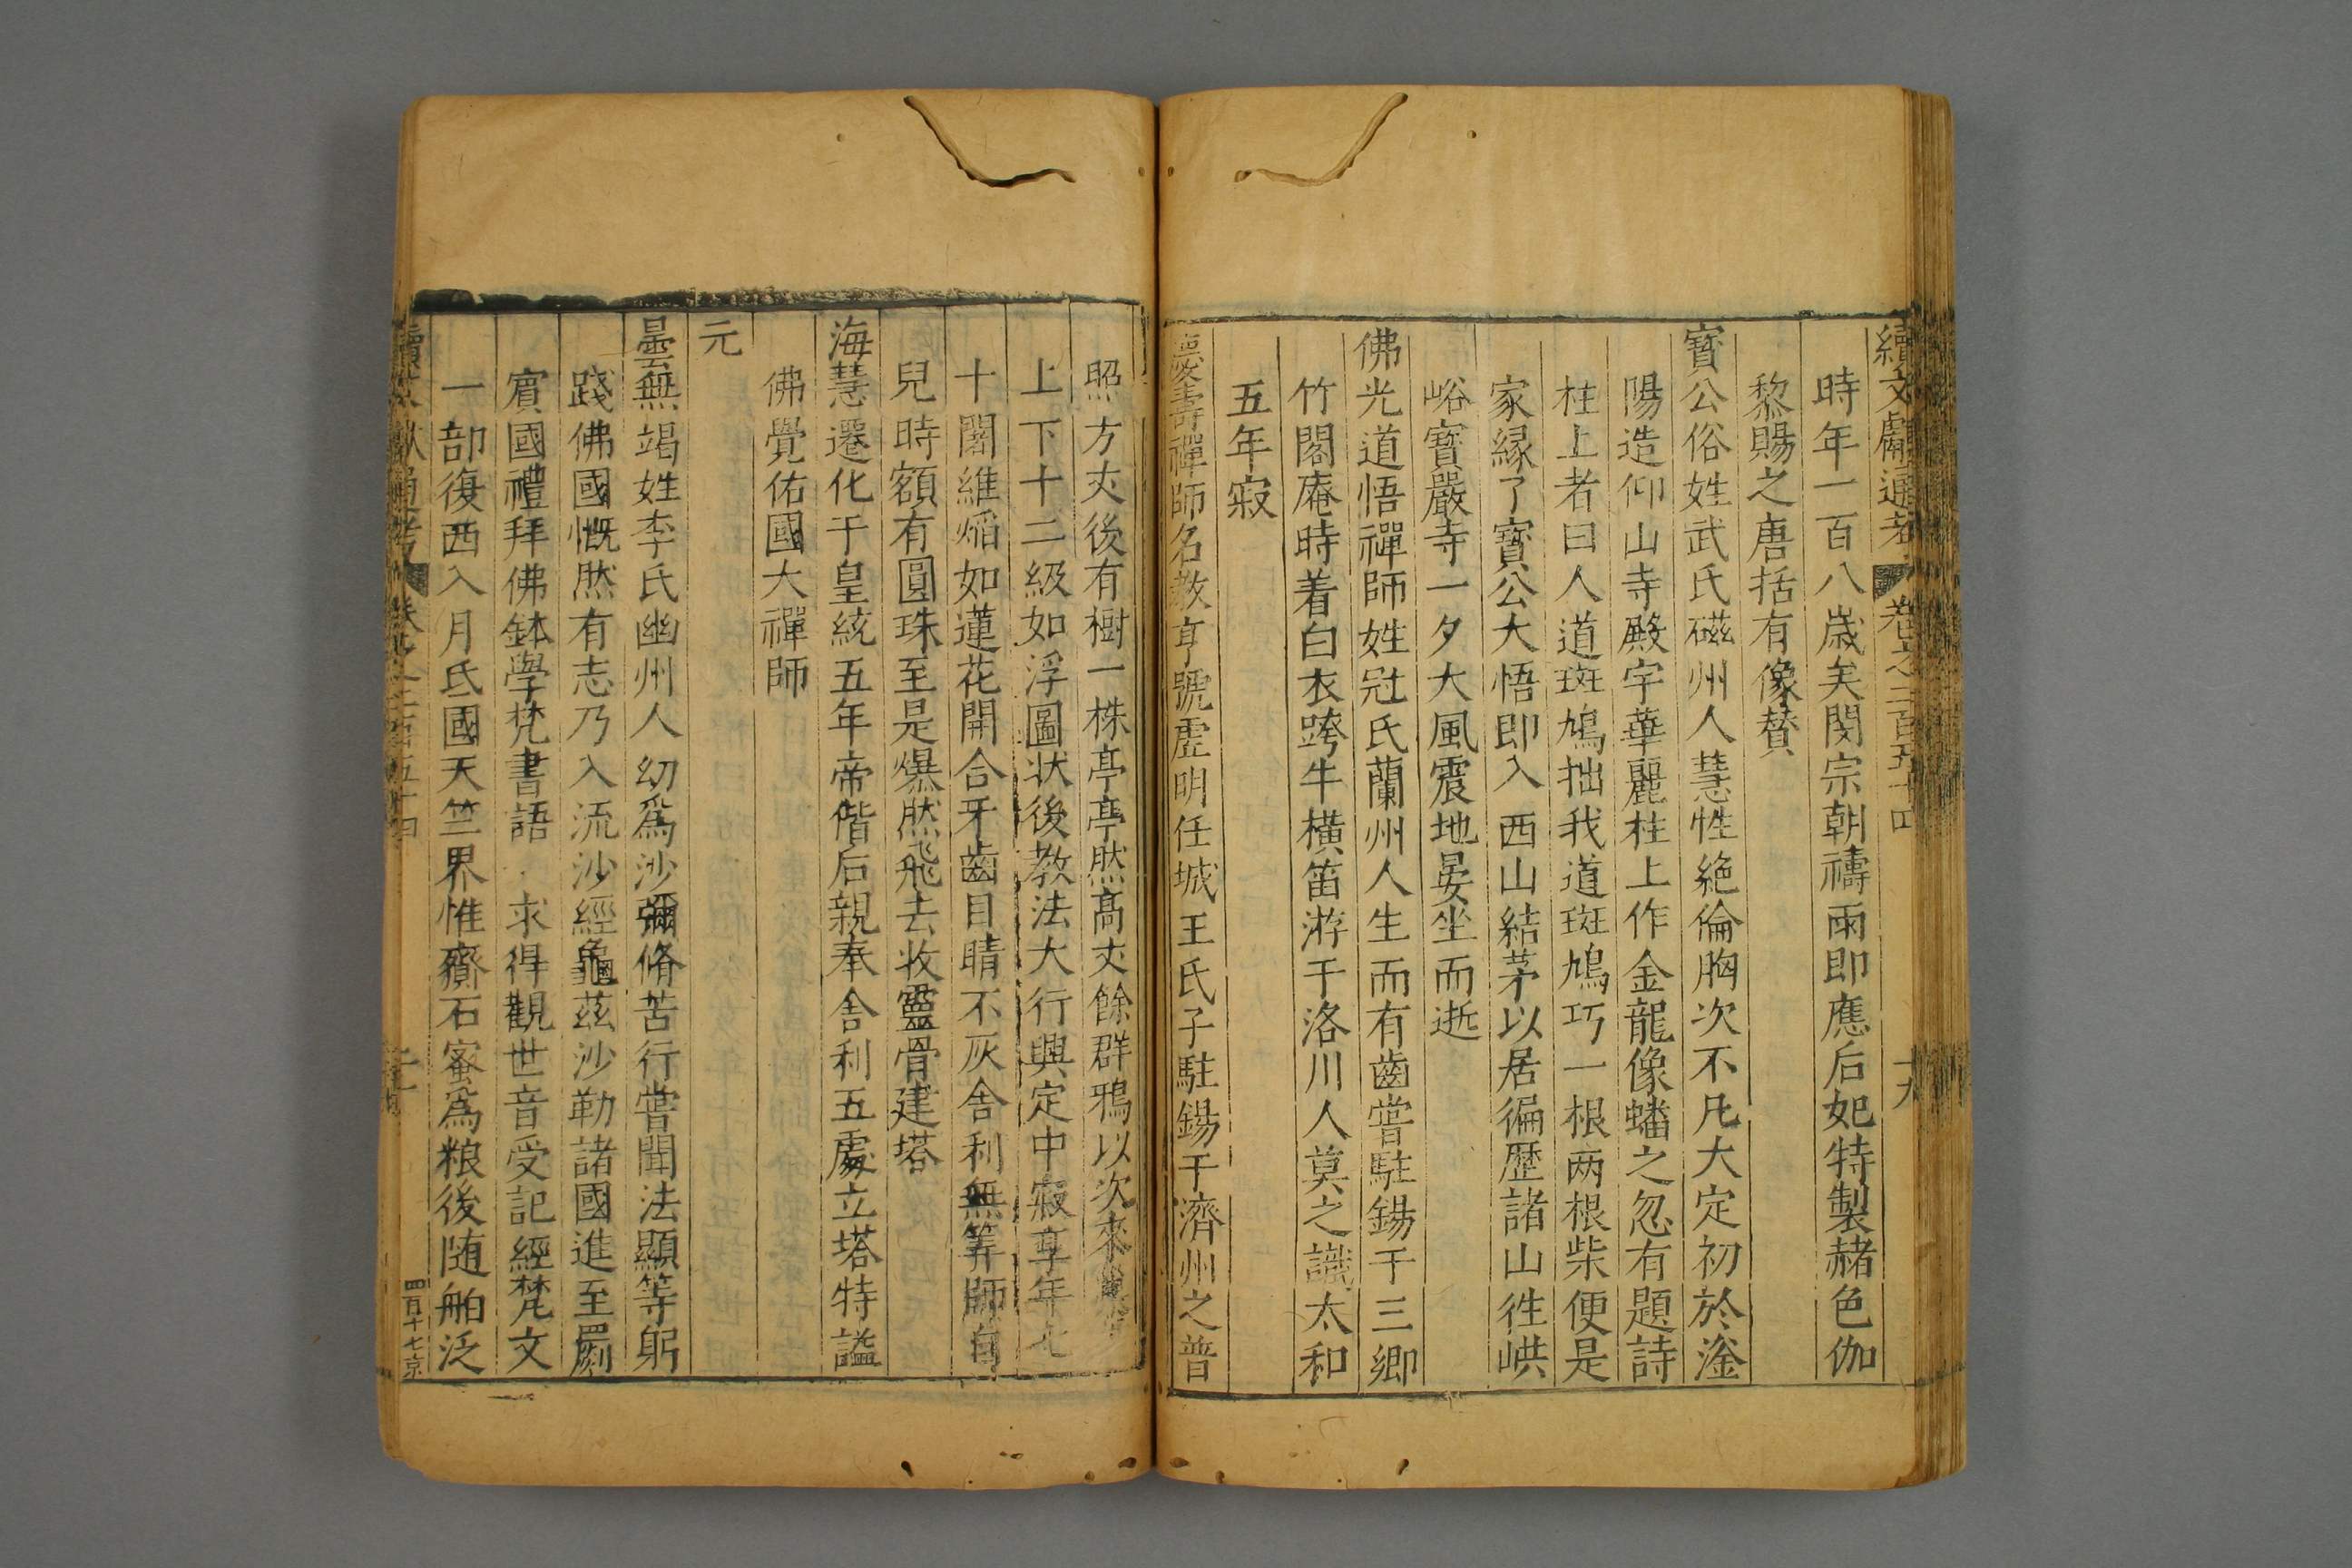 續文獻通考 卷之二百五十四 十九
時年一百八歲矣閔宗朝禱雨即應后妃特製赭色伽
黎賜之唐括有像賛
寳公俗姓武氏磁州人慧性絶倫胸次不凡大定初於滏
陽造仰山寺殿宇華麗柱上作金龍像蟠之忽有題詩
柱上者曰人道斑鳩拙我道斑鳩巧一根两根柴便是
家縁了寳公大悟即入西山結茅以居徧歴諸山徃峡
峪寳嚴寺一夕大風震地晏坐而逝
佛光道悟禪師姓冦氏蘭州人生而有齒甞駐錫于三鄉
竹閣庵時着白衣跨牛横笛游于洛川人莫之識太和
五年寂
壽禪師名教亨號虚明任城王氏子駐錫于濟州之普
照方丈後有樹一株亭亭然髙丈餘群鴉以次來
上下十二級如浮圖状後教法大行興定中寂享年七
十闍維焰如蓮花開合牙齒目睛不灰舍利無筭師自
兒時額有圓珠至是爆然飛去收靈骨建塔
海慧遷化于皇統五年帝偕后親奉舍利五處立塔特諡
佛覺佑國大禪師
元
曇無竭姓李氏幽州人幼爲沙彌脩苦行嘗聞法顯等躬
踐佛國慨然有志乃入流沙經龜茲沙勒諸國進至罽
賓國禮拜佛鉢學梵書語求得觀世音受記經梵文
一部復西入月氏國天竺界惟齎石蜜爲粮後随舶泛
續文獻通考 卷之二百五十四 二十 四百十七京